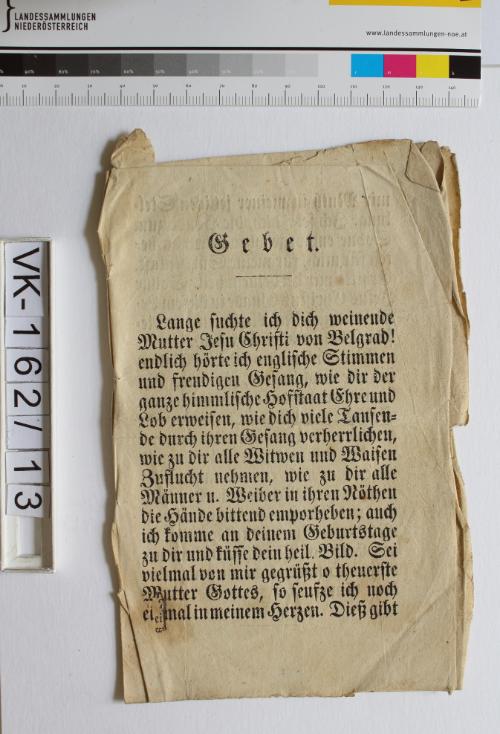 LANDESSAMMLUNGEN
NIEDERÖSTERREICH
www.landessammlungen-noe.at
VK-162/13
Gebet.
Lange suchte ich dich weinende
Mutter Jesu Christi von Belgrad!
endlich hörte ich englische Stimmen
und freudigen Gesang, wie dir der
ganze himmlische Hofstaat Ehre und
Lob erweisen, wie dich viele Tausen-
de durch ihren Gesang verherrlichen,
wie zu dir alle Witwen und Waisen
Zuflucht nehmen, wie zu dir alle
Männer u. Weiber in ihren Nöthen
die Hände bittend emporheben; auch
ich komme an deinem Geburtstage
zu dir und küsse dein heil. Bild. Sei
vielmal von mir gegrüßt o theuerste
Mutter Gottes, so seufze ich noch
einmal in meinem Herzen. Dieß gibt